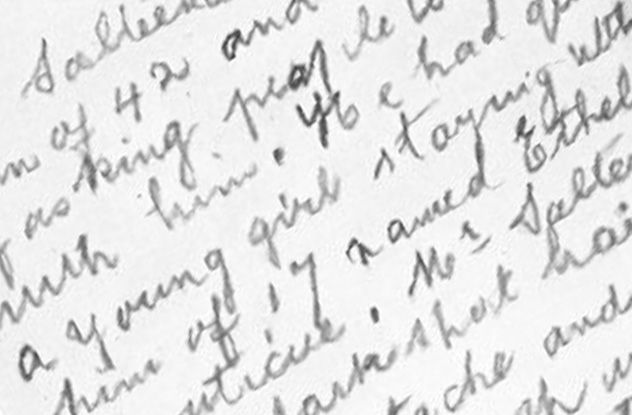 Salteena
of 42 and
asking peaple to
with him. He had
a young girl staying with
him of 17 named Ethel
nticue. Mr Saltee
dark shot hai
tache and